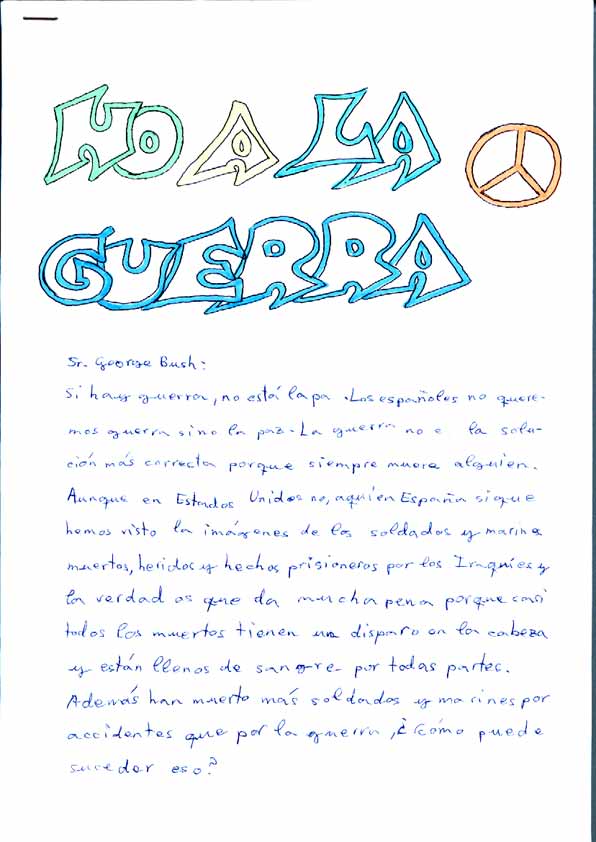 NO A LA
GUERRA
Sr. George Bush:
Si hay guerra, no está la pa . Los españoles no quere-
mos guerra sino la paz. La guerra no e la solu-
ción más correcta porque siempre muere alguien.
Aunque en Estados Unidos no, aquí en España si que
hemos visto la imágenes de los soldados y marines
muertos, heridos y hechos prisioneros por los Iraquíes y
la verdad es que da mucha pena porque casi
todos los muertos tienen un disparo en la cabeza
y están llenos de sangre por todas partes.
Además han muerto más soldados y marines por
accidentes que por la guerra, ¿cómo puede
suceder eso?